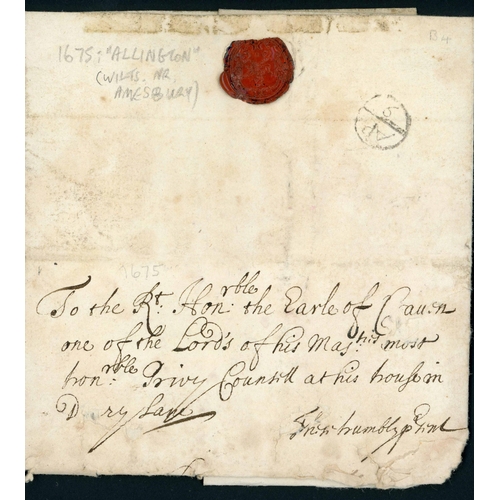 1675; "ALLINGTON"
(WILTS. NR.
AMESBURY)
B4
AP
1675
To the Rt. Hon:rble the Earle of Craven
one of the Lords of his Maj:ties most
hon:rble Privy Counsell at his house in
D ry Lane
These humbly psent